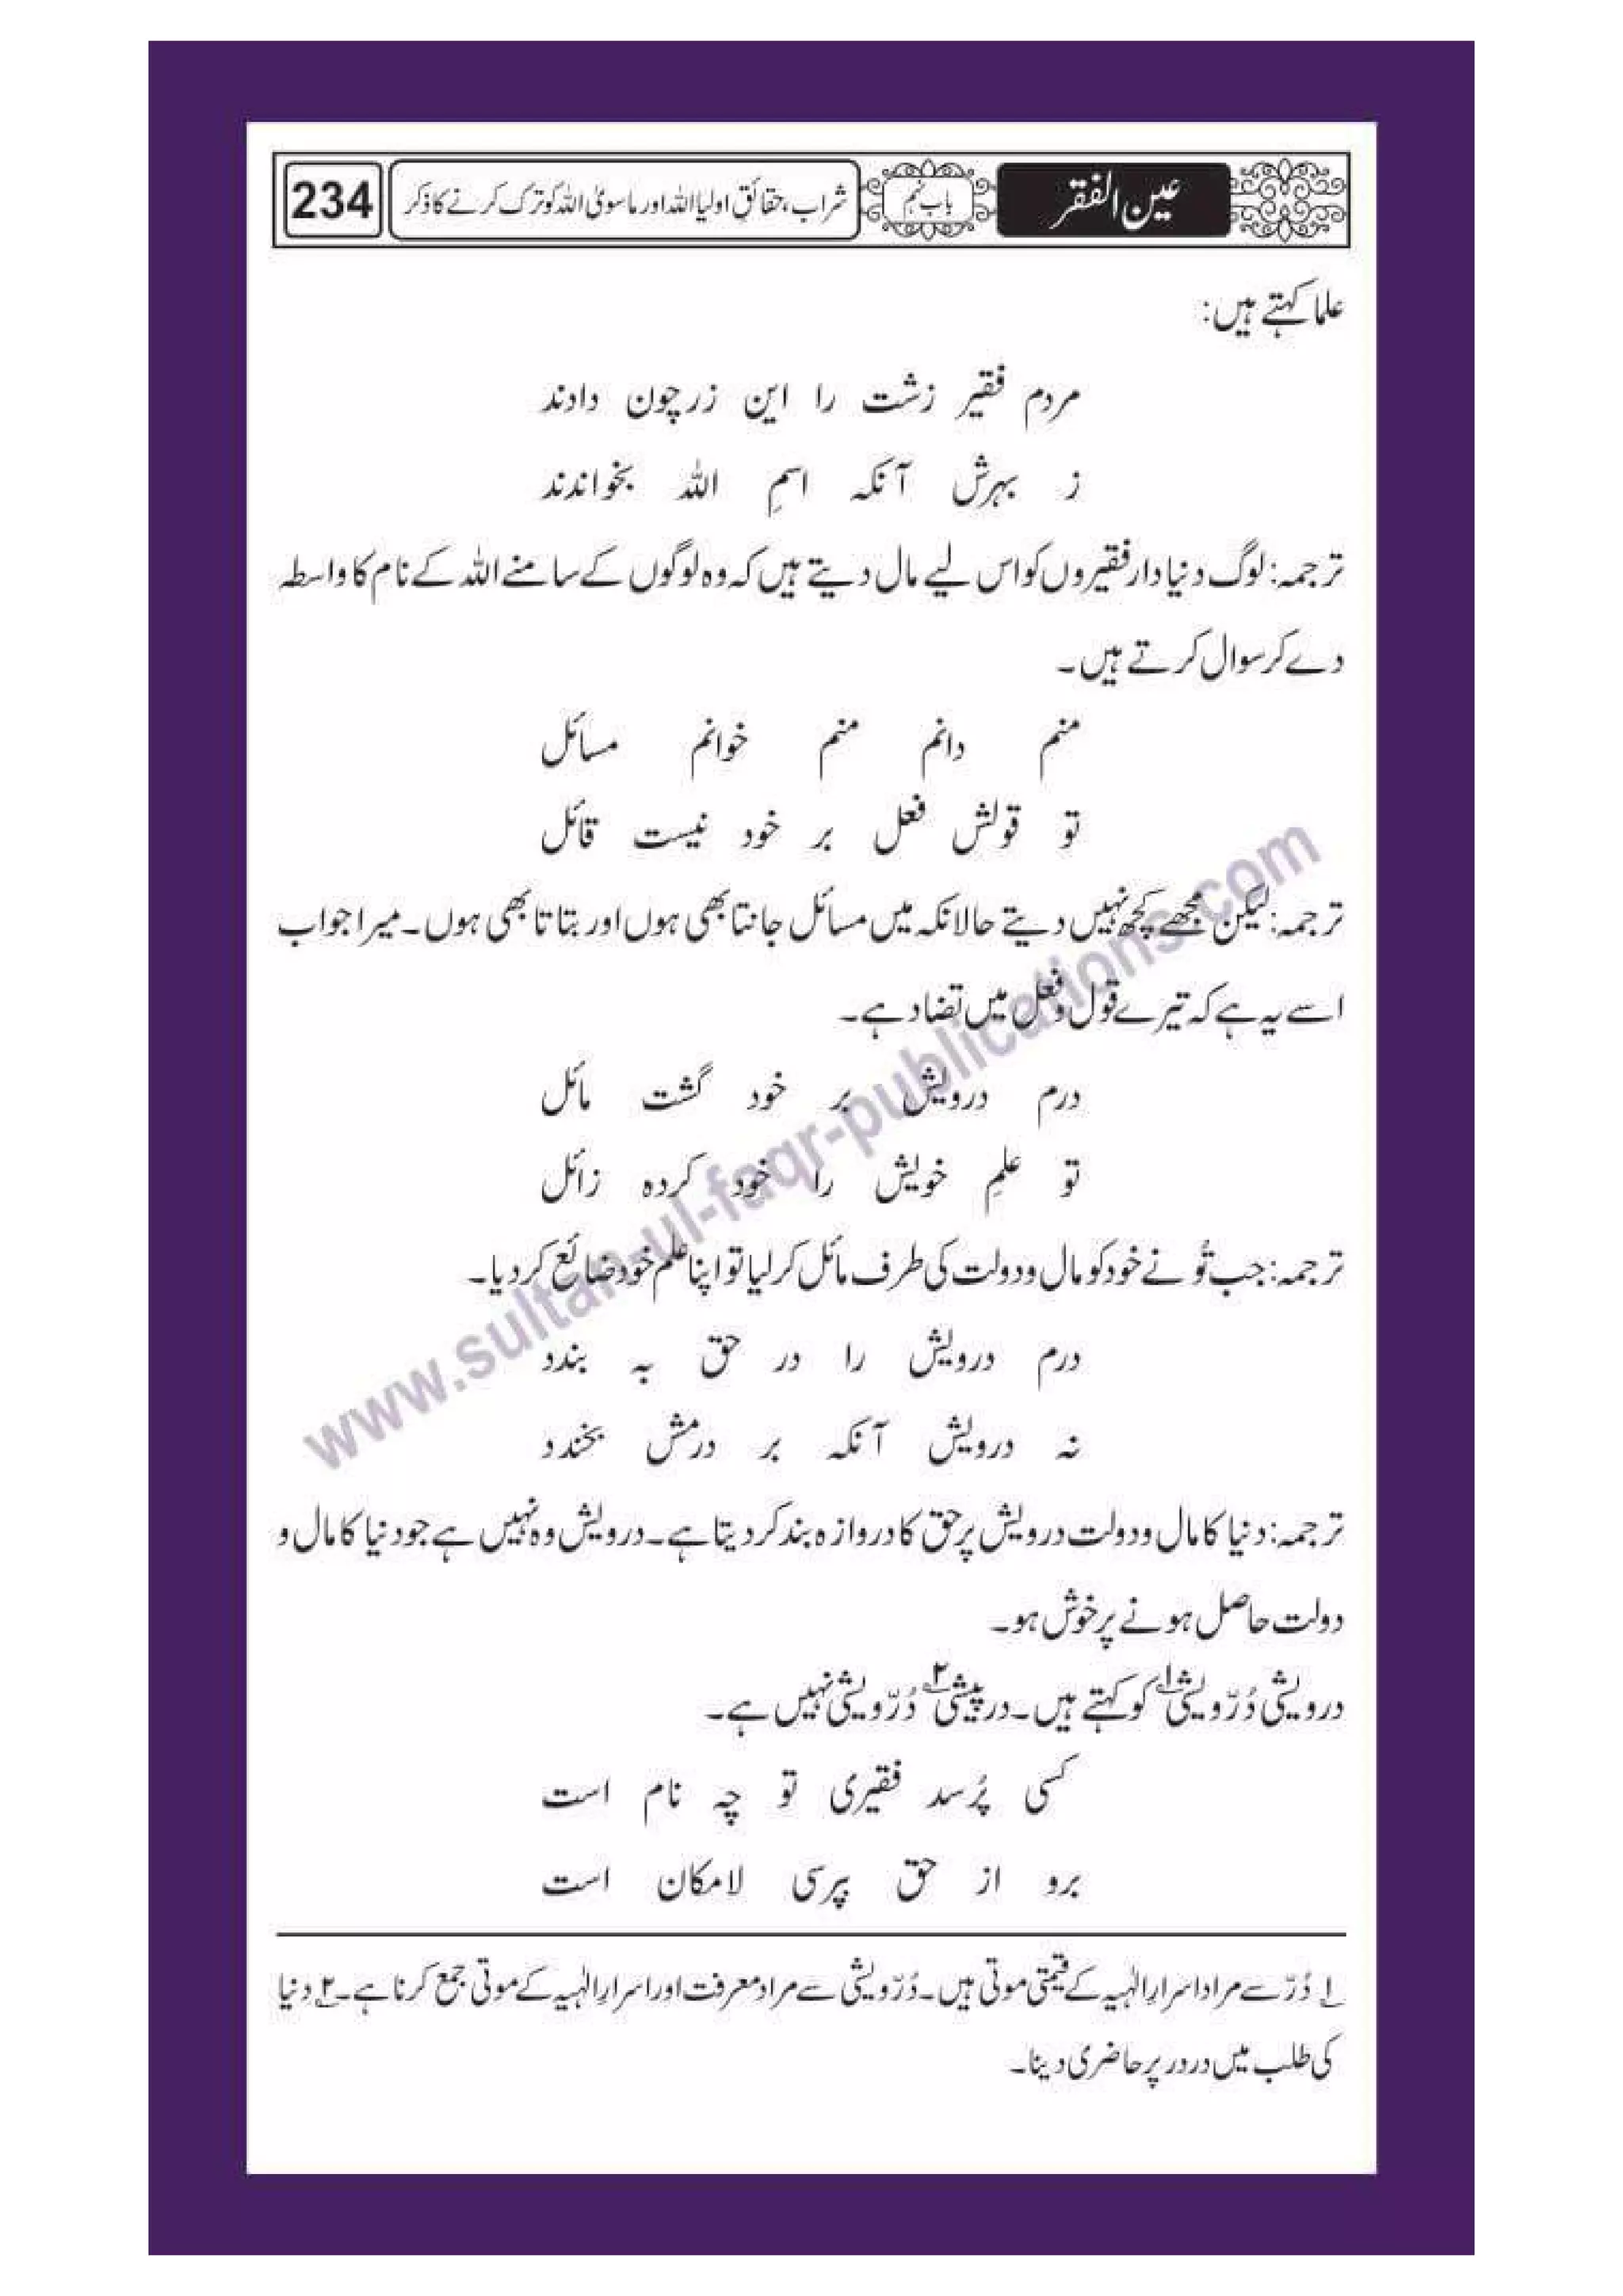 عین الفقر باب نہم شراب، حقائقِ اولیا اللہ اور ماسویٰ اللہ کو ترک کرنے کا ذکر 234
علما کہتے ہیں:
مردم فقیر زشت را این زر چون دادند
ز بہرش آنکہ اسمِ اللہ بخواندند
ترجمہ: لوگ دنیادار فقیروں کو اس لیے مال دیتے ہیں کہ وہ لوگوں کے سامنے اللہ کے نام کا واسطہ
دے کر سوال کرتے ہیں۔
منم دانم منم خوانم مسائل
تو قولش فعل بر خود نیست قائل
ترجمہ: لیکن مجھے کچھ نہیں دیتے حالانکہ میں مسائل جانتا بھی ہوں اور بتاتا بھی ہوں۔ میرا جواب
اسے یہ ہے کہ تیرے قول و فعل میں تضاد ہے۔
درم درویش بر خود گشت مائل
تو علمِ خویش را خود کردہ زائل
ترجمہ: جب تُو نے خود کو مال و دولت کی طرف مائل کر لیا تو اپنا علم خود ضائع کر دیا۔
درم درویش را در حق بہ بندد
نہ درویش آنکہ بر درمش بخندد
ترجمہ: دنیا کا مال و دولت درویش پر حق کا دروازہ بند کر دیتا ہے۔ درویش وہ نہیں ہے جو دنیا کا مال و
دولت حاصل ہونے پر خوش ہو۔
درویشی دُرّ ویشی۱؎ کو کہتے ہیں۔ در پیشی۲؎ دُرّ ویشی نہیں ہے۔
کسی پُرسد فقیری تو چہ نام است
برو از حق بپرسی لامکان است
۱؎ دُرّ سے مراد اسرارِ الٰہیہ کے قیمتی موتی ہیں۔ دُرّ ویشی سے مراد معرفت اور اسرارِ الٰہیہ کے موتی جمع کرنا ہے۔ ۲؎ دنیا
کی طلب میں در در پر حاضری دینا۔
www.sultan-ul-faqr-publications.com